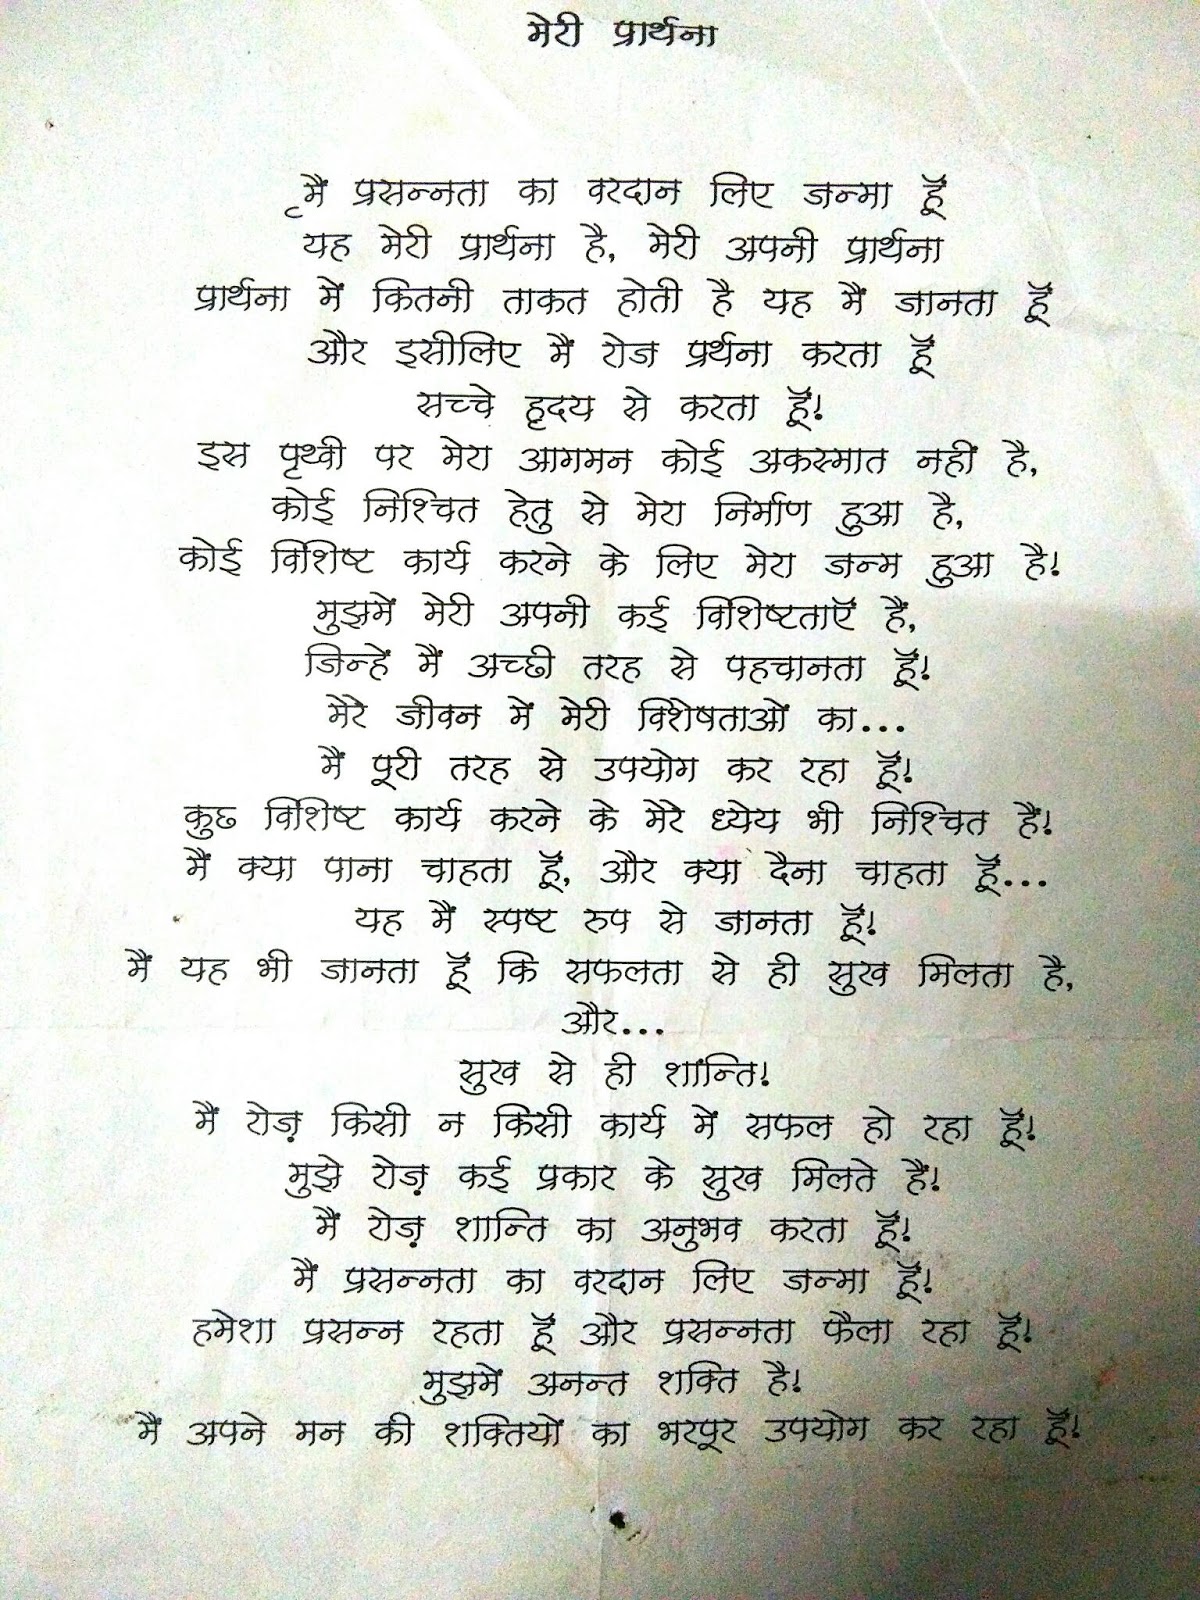 मेरी प्रार्थना
मैं प्रसन्नता का वरदान लिए जन्मा हूँ
यह मेरी प्रार्थना है, मेरी अपनी प्रार्थना
प्रार्थना में कितनी ताकत होती है यह मैं जानता हूँ
और इसीलिए मैं रोज प्रर्थना करता हूँ
सच्चे हृदय से करता हूँ!
इस पृथ्वी पर मेरा आगमन कोई अकस्मात नहीं है,
कोई निश्चित हेतु से मेरा निर्माण हुआ है,
कोई विशिष्ट कार्य करने के लिए मेरा जन्म हुआ है!
मुझमें मेरी अपनी कई विशिष्टताएँ हैं,
जिन्हें मैं अच्छी तरह से पहचानता हूँ!
मेरे जीवन में मेरी विशेषताओं का...
मैं पूरी तरह से उपयोग कर रहा हूँ!
कुछ विशिष्ट कार्य करने के मेरे ध्येय भी निश्चित हैं!
मैं क्या पाना चाहता हूँ, और क्या दैना चाहता हूँ...
यह मैं स्पष्ट रुप से जानता हूँ!
मैं यह भी जानता हूँ कि सफलता से ही सुख मिलता है,
और...
सुख से ही शांन्ति!
मैं रोज़ किसी न किसी कार्य में सफल हो रहा हूँ!
मुझे रोज़ कई प्रकार के सुख मिलते हैं!
मैं रोज़ शान्ति का अनुभव करता हूँ!
मैं प्रसन्नता का वरदान लिए जन्मा हूँ!
हमेशा प्रसन्न रहता हूँ और प्रसन्नता फैला रहा हूँ!
मुझमें अनन्त शक्ति है!
मैं अपने मन की शक्तियों का भरपूर उपयोग कर रहा हूँ!